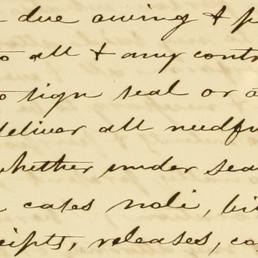 due owing & p
to all & any contr
to sign seal or a
deliver all needfu
whether under sea
cates note, bi
ceipts, releases, co